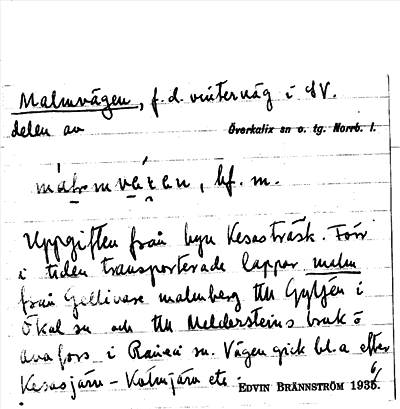 Malmvägen, f.d. vinterväg i SV.
delen av Överkalix sn o. tg. Norrb. l.
bf. m.
Uppgiften från byn Kesasträsk. Förr
i tiden transporterade lappar malm
från Gellivare malmberg till Gyljén i
Ökal sn och till Meldersteins bruk o
i Råneå sn. Vägen gick bl.a efter
Kesasjärv - Kolmjärv etc.
EDVIN BRÄNNSTRÖM 1935